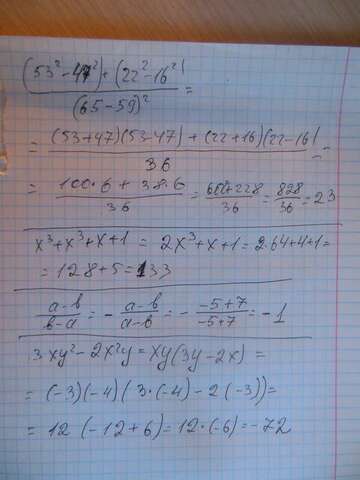 (53² - 47²) + (22² - 16²) / (65 - 59)² =
= (53+47)(53-47) + (22+16)(22-16) / 36 =
= 100·6 + 38·6 / 36 = 600+228 / 36 = 828 / 36 = 23
x³+x³+x+1 = 2x³+x+1 = 2·64+4+1=
= 128+5 = 133
a-b / b-a = - a-b / a-b = - -5+7 / -5+7 = -1
3xy² - 2x²y = xy(3y - 2x) =
= (-3)(-4)(3·(-4) - 2(-3)) =
= 12 (-12+6) = 12·(-6) = -72